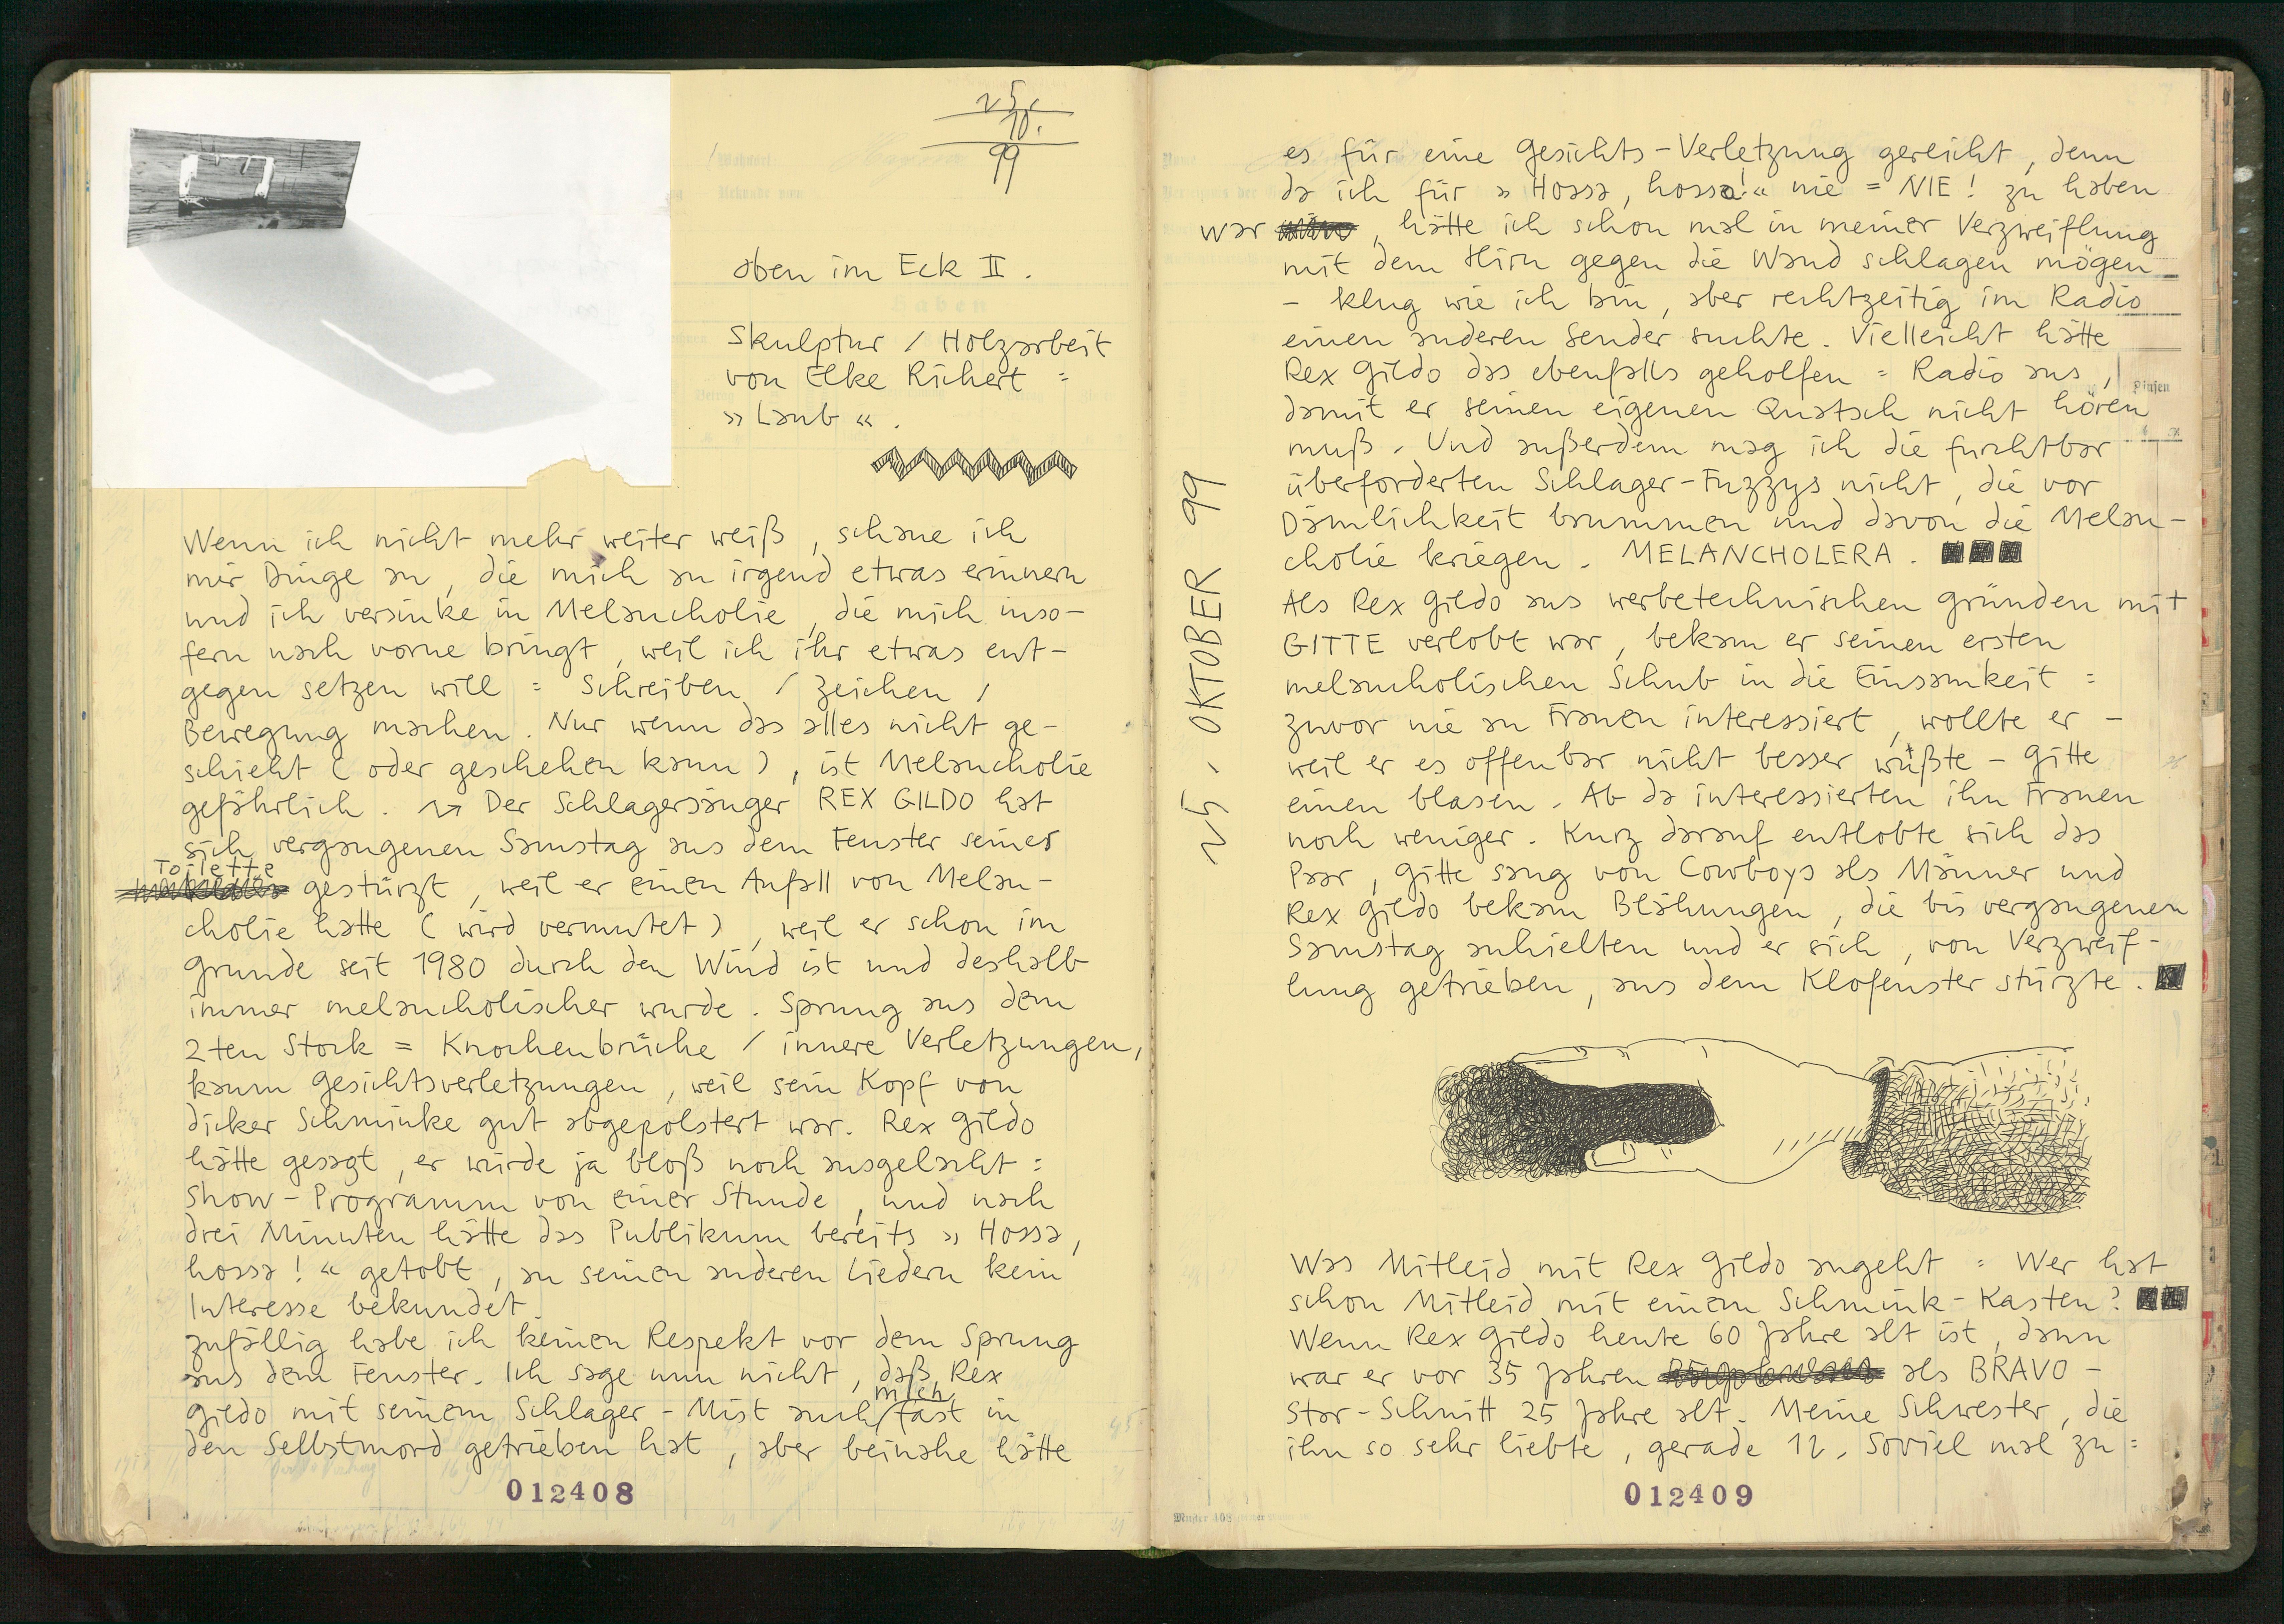 25.
10.
99
oben im Eck II.
Skulptur / Holzarbeit
von Elke Richert =
» Laub « .
Wenn ich nicht mehr weiter weiß, schaue ich
mir Dinge an, die mich an irgend etwas erinnern
und ich versinke in Melancholie, die mich inso-
fern nach vorne bringt, weil ich ihr etwas ent-
gegen setzen will = Schreiben / Zeichen /
Bewegung machen. Nur wenn das alles nicht ge-
schieht (oder geschehen kann), ist Melancholie
gefährlich. → Der Schlagersänger REX GILDO hat
sich vergangenen Samstag aus dem Fenster seiner
Toilette
gestürzt, weil er einen Anfall von Melan-
cholie hatte (wird vermutet), weil er schon im
Grunde seit 1980 durch den Wind ist und deshalb
immer melancholischer wurde. Sprung aus dem
2ten Stock = Knochenbrüche / innere Verletzungen,
kaum Gesichtsverletzungen, weil sein Kopf von
dicker Schminke gut abgepolstert war. Rex Gildo
hätte gesagt, er würde ja bloß noch ausgelacht =
Show-Programm von einer Stunde, und nach
drei Minuten hätte das Publikum bereits » Hossa,
hossa! « getobt, an seinen anderen Liedern kein
Interesse bekundet.
Zufällig habe ich keinen Respekt vor dem Sprung
aus dem Fenster. Ich sage nun nicht, daß Rex
mich
Gildo mit seinem Schlager-Mist auch / fast in
den Selbstmord getrieben hat, aber beinahe hätte
012408
25. OKTOBER 99
es für eine Gesichts-Verletzung gereicht, denn
da ich für » Hossa, hossa! « nie = NIE! zu haben
war, hätte ich schon mal in meiner Verzweiflung
mit dem Hirn gegen die Wand schlagen mögen
- klug wie ich bin, aber rechtzeitig im Radio
einen anderen Sender suchte. Vielleicht hätte
Rex Gildo das ebenfalls geholfen = Radio aus,
damit er seinen eigenen Quatsch nicht hören
muß. Und außerdem mag ich die furchtbar
überforderten Schlager-Fuzzys nicht, die vor
Dämlichkeit brummen und davon die Melan-
cholie kriegen. MELANCHOLERA.
Als Rex Gildo aus werbetechnischen Gründen mit
GITTE verlobt war, bekam er seinen ersten
melancholischen Schub in die Einsamkeit =
zuvor nie an Frauen interessiert, wollte er -
weil er es offenbar nicht besser wußte - Gitte
einen blasen. Ab da interessierten ihn Frauen
noch weniger. Kurz darauf entlobte sich das
Paar, Gitte sang von Cowboys als Männer und
Rex Gildo bekam Blähungen, die bis vergangenen
Samstag anhielten und er sich, von Verzweif-
lung getrieben, aus dem Klofenster stürzte.
Was Mitleid mit Rex Gildo angeht = Wer hat
schon Mitleid mit einem Schmink-Kasten?
Wenn Rex Gildo heute 60 Jahre alt ist, dann
war er vor 35 Jahren als BRAVO-
Star-Schnitt 25 Jahre alt. Meine Schwester, die
ihn so sehr liebte, gerade 12. Soviel mal zu =
012409